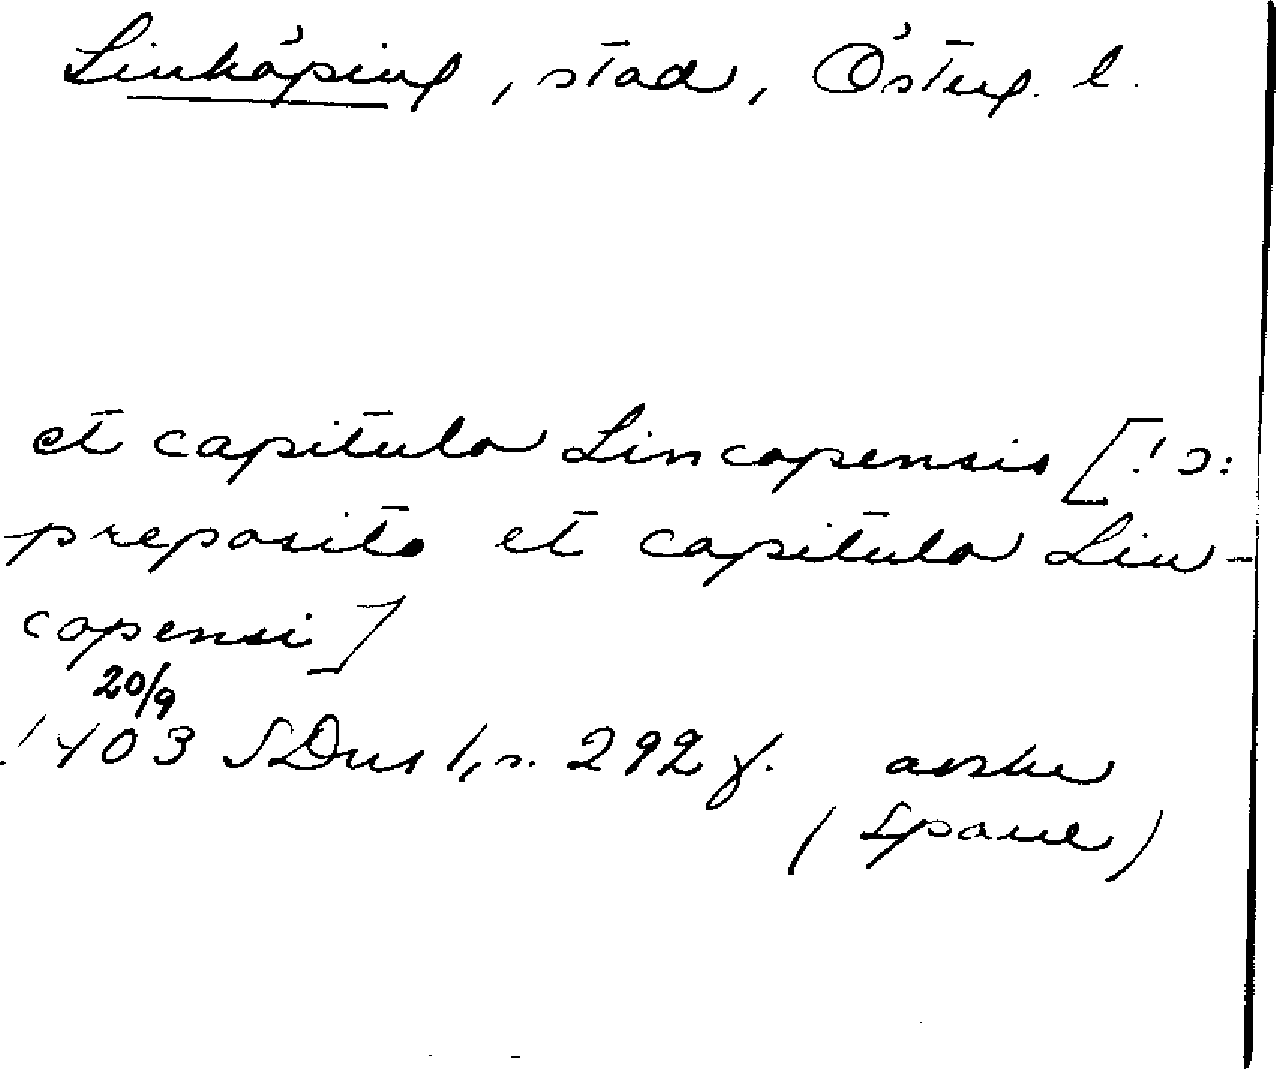 Linköping, stad, Österg. l.
et capitulo Lincopensis [! ɔ:
preposito et capitulo Lin-
copensi]
20/9
1403 SDns 1, s. 292 f. avskr
(Spare)